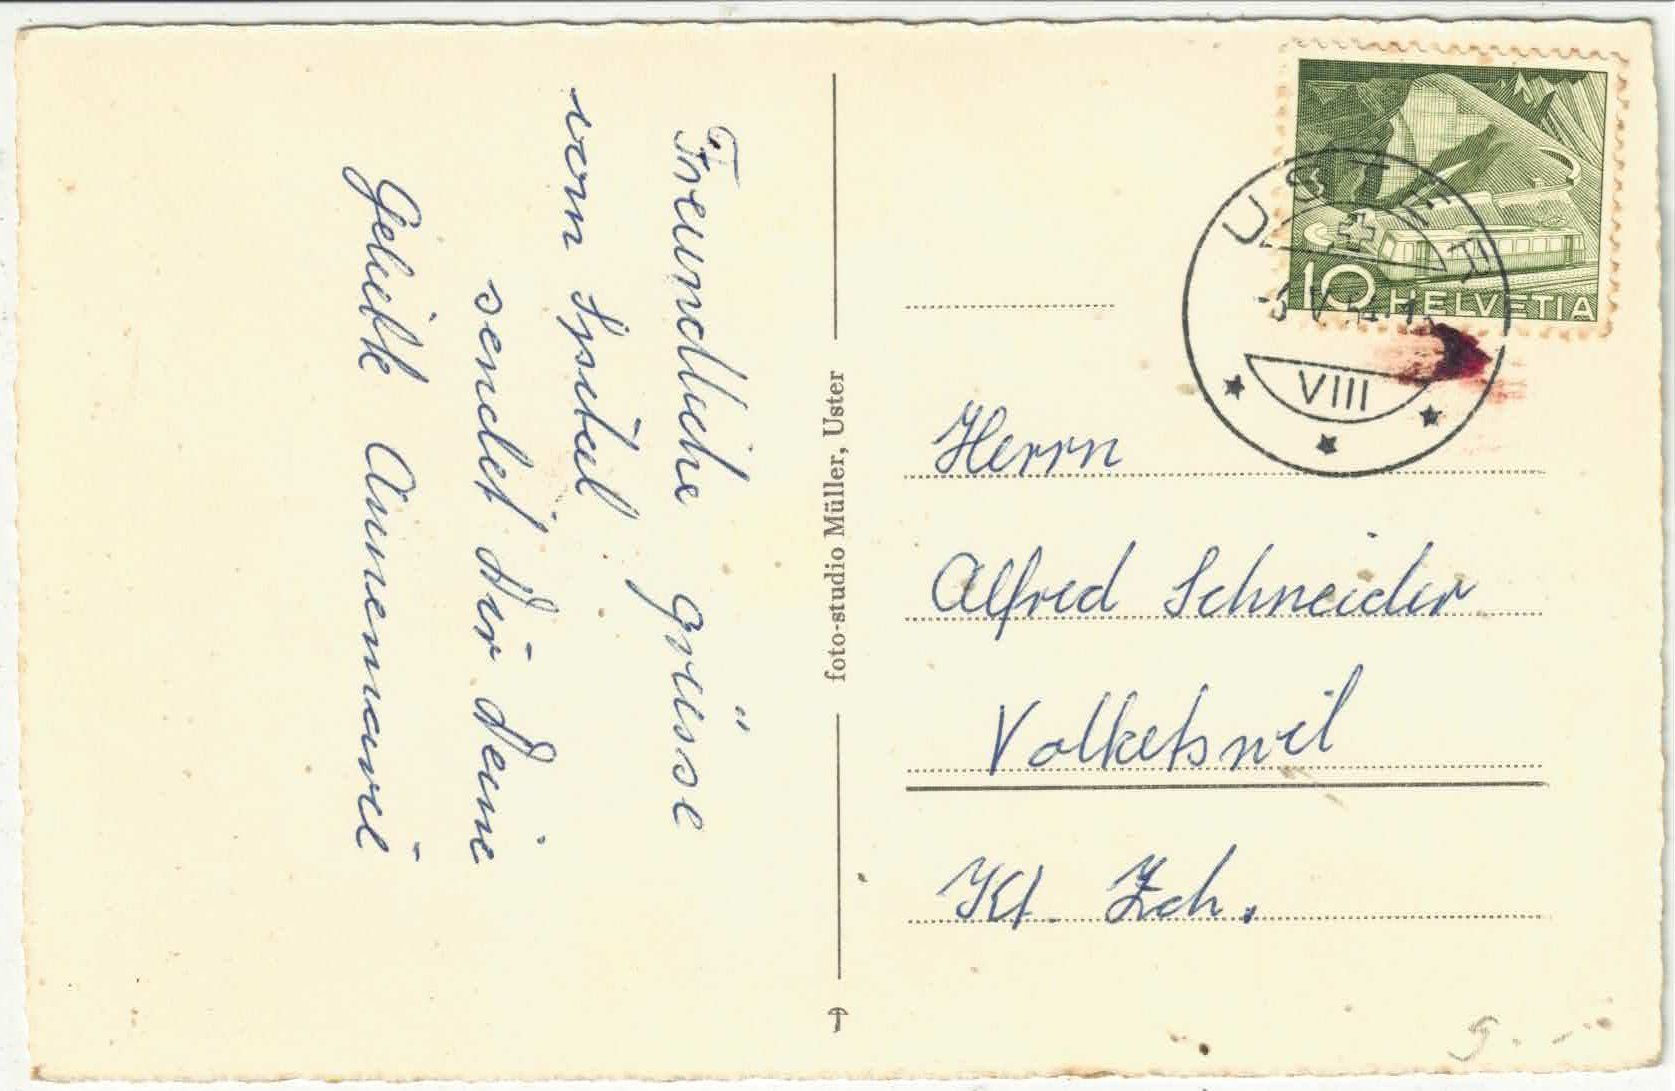 Freundliche Grüsse
vom Spital
sendet Dir Deine
Geliebte Annemarie
foto-studio Müller, Uster
USTER
VIII
10 HELVETIA
Herrn
Alfred Schneider
Volketswil
Kt. Zch.